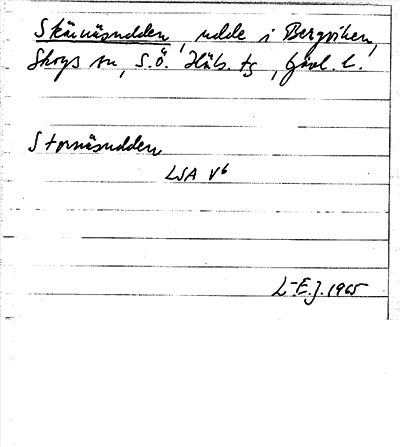 Skärnäsudden, udde i Bergviken,
Skogs sn, S.Ö. Häls. tg, Gävl. l.
Stornäsudden
LSA V6
L-E.J. 1965